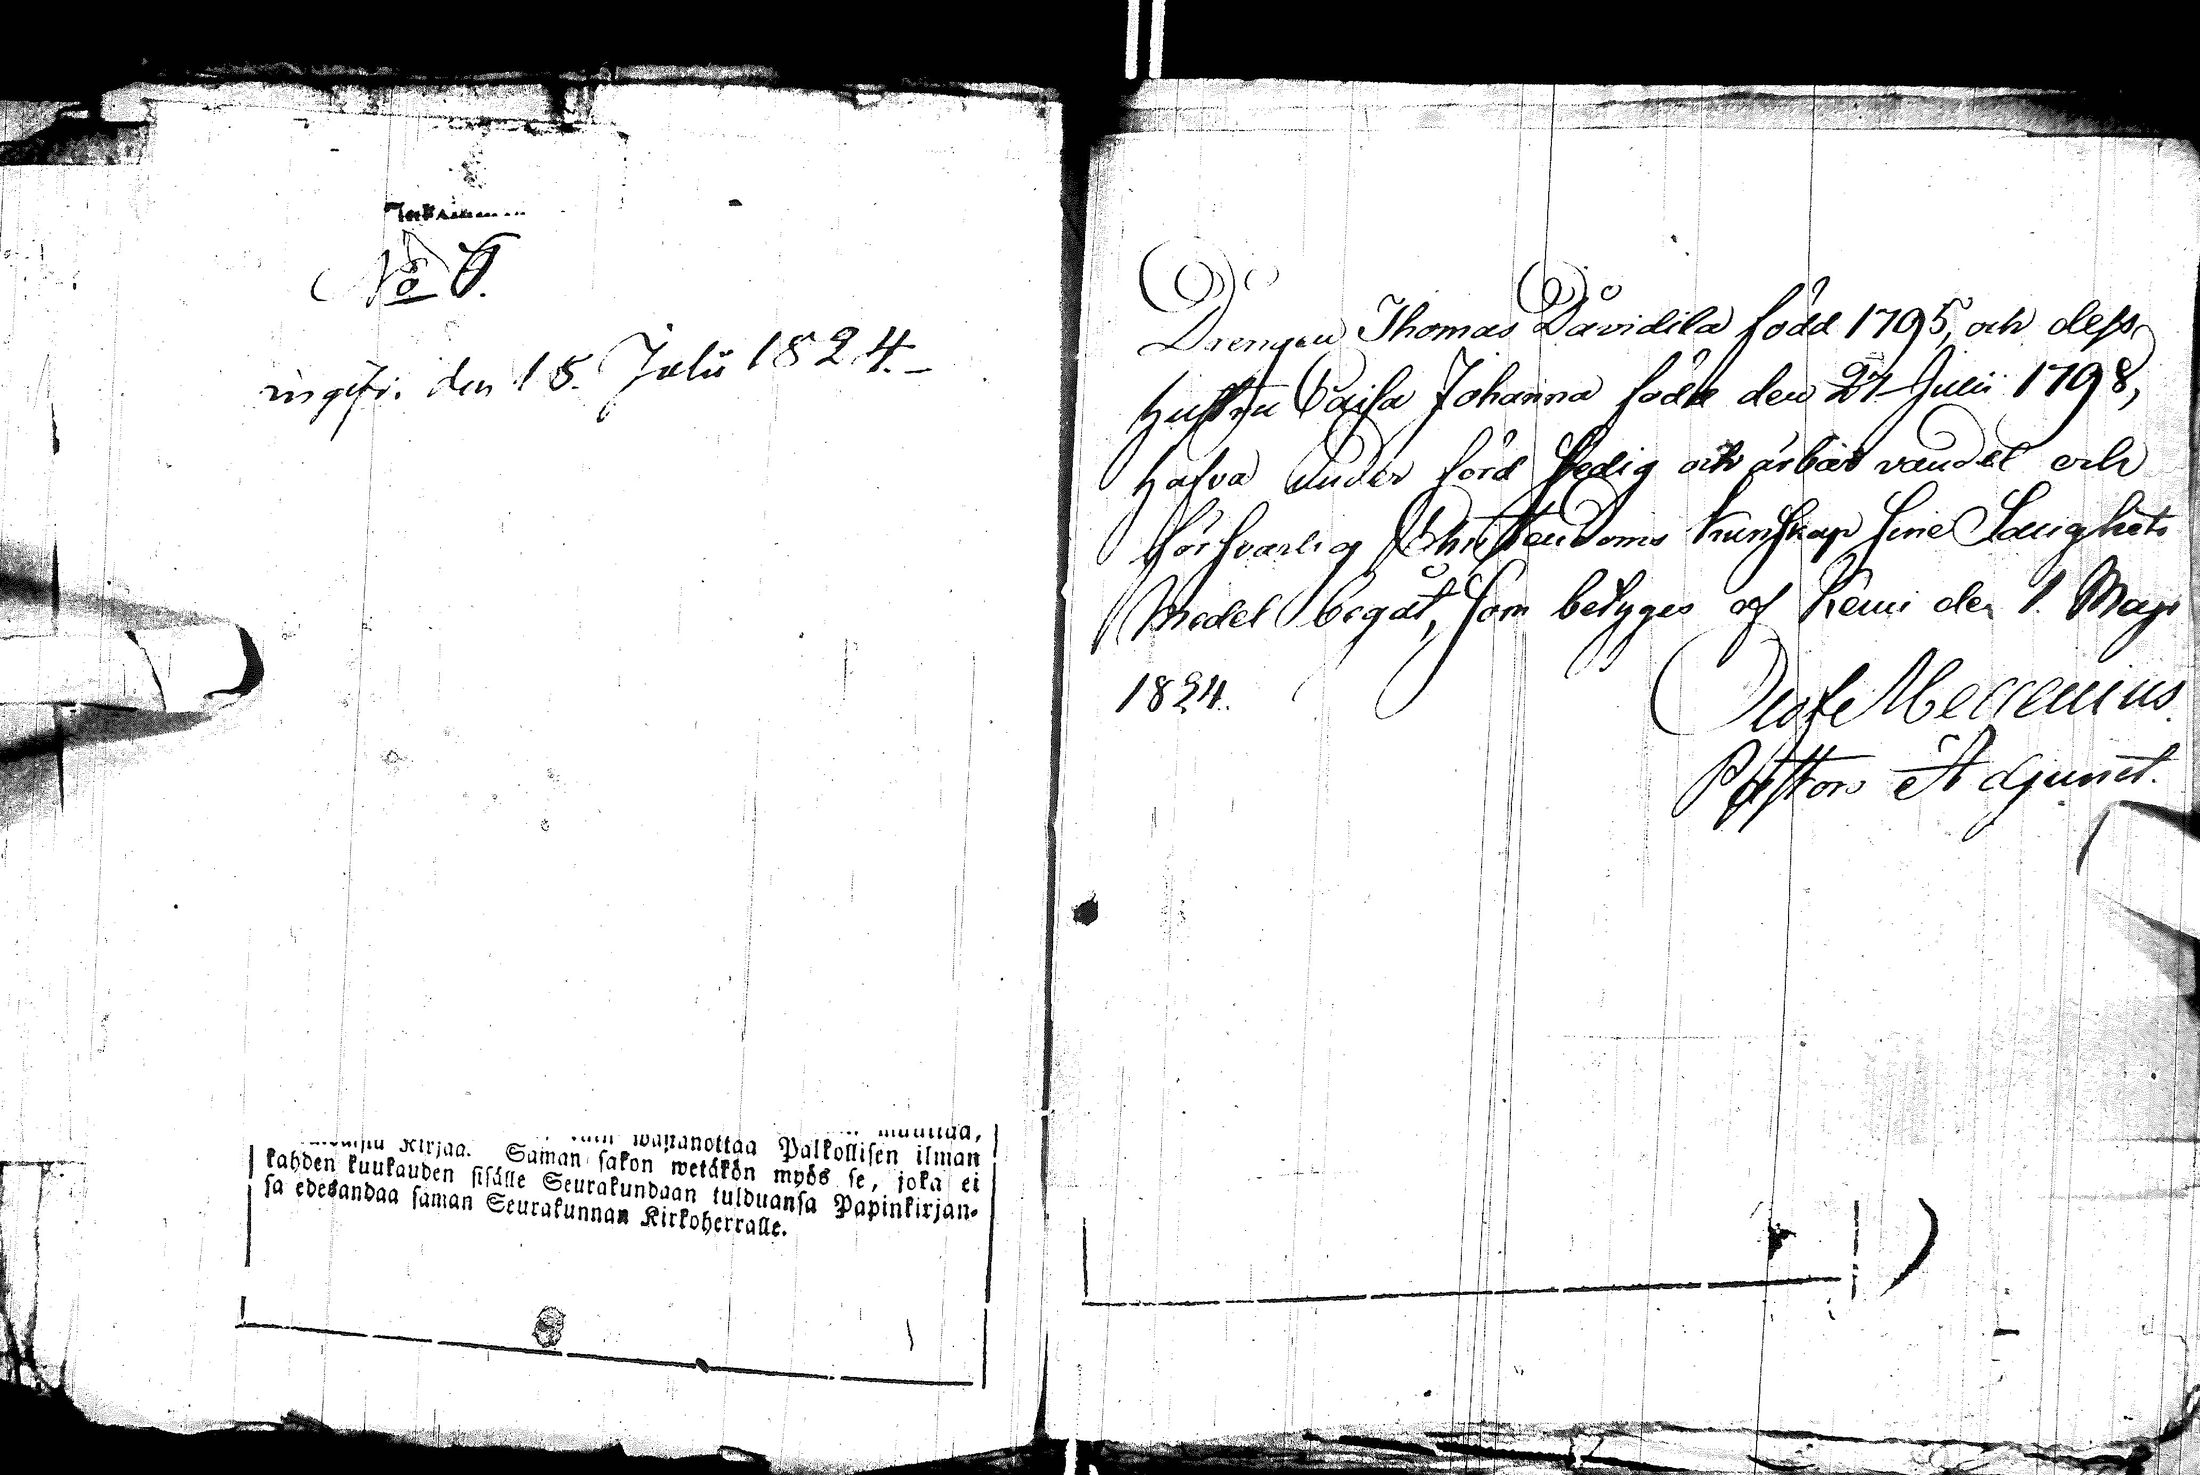 No 6.
ingifr. den 15. Julii 1824.
kirjaa. Saman sakon wetäkön myös se, joka ei
wastanottaa Palkollisen ilman
kahden kuukauden sisälle Seurakundaan tulduansa Papinkirjan-
sa edesandaa saman Seurakunnan Kirkoherralle.
Drengen Thomas Davidila född 1795, och dess
Hustru Caisa Johanna född den 24 Julii 1798,
Hafva under förd fredig och ärbar vandel och
försvarlig Christendoms Kunskap sine Salighets
Medel begåt, som betyges af Kemi den 1. Maji
1824.
Olof Mecrenius
Pastors Adjunct.